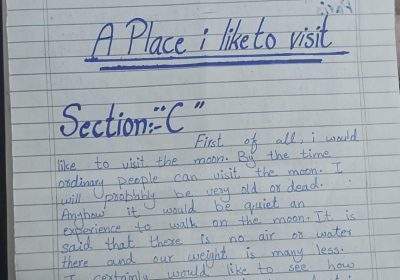 A Place i like to visit
Section:- "C"
First of all, i would
like to visit the moon. By the time
ordinary people can visit the moon. I
will probably be very old or dead.
Anyhow it would be quiet an
experience to walk on the moon. It is
said that there is no air or water
there and our weight is many less.
I certainly would like to see, how